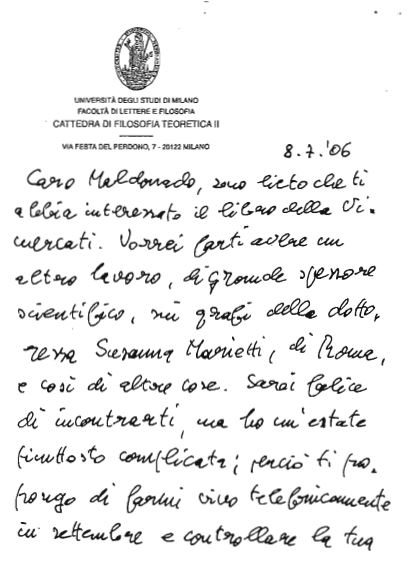 UNIVERSITÀ DEGLI STUDI DI MILANO
FACOLTÀ DI LETTERE E FILOSOFIA
CATTEDRA DI FILOSOFIA TEORETICA II
VIA FESTA DEL PERDONO, 7 - 20122 MILANO
8.7.'06
Caro Maldonado, sono lieto che ti
abbia interessato il libro della Vi-
mercati. Vorrei farti avere un
altro lavoro, di grande spessore
scientifico, sui grafi della dotto-
ressa Susanna Marietti, di Roma,
e così di altre cose. Sarei felice
di incontrarti, ma ho un'estate
piuttosto complicata; perciò ti pro-
pongo di farmi vivo telefonicamente
in settembre e controllare la tua